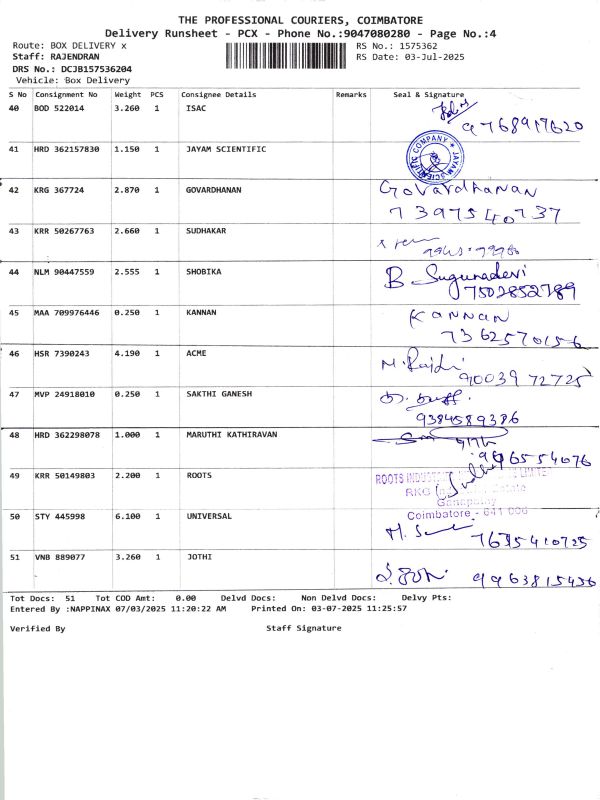 THE PROFESSIONAL COURIERS, COIMBATORE
Delivery Runsheet - PCX - Phone No.:9047080280 - Page No.:4
Route: BOX DELIVERY x
RS No.: 1575362
Staff: RAJENDRAN
RS Date: 03-Jul-2025
DRS No.: DCJB157536204
Vehicle: Box Delivery
S No Consignment No Weight PCS Consignee Details Remarks Seal & Signature
40 BOD 522014 3.260 1 ISAC
9768917620
41 HRD 362157830 1.150 1 JAYAM SCIENTIFIC
JAYAM SCIENTIFIC COMPANY
42 KRG 367724 2.870 1 GOVARDHANAN Govardhanan
7397540737
43 KRR 50267763 2.660 1 SUDHAKAR
44 NLM 90447559 2.555 1 SHOBIKA B Sugunadevi
7502852789
45 MAA 709976446 0.250 1 KANNAN KANNAN
7362570156
46 HSR 7390243 4.190 1 ACME
90039 72725
47 MVP 24918010 0.250 1 SAKTHI GANESH
9384589386
48 HRD 362298078 1.000 1 MARUTHI KATHIRAVAN
9965554076
49 KRR 50149803 2.200 1 ROOTS ROOTS
RKG
Ganapathy
Coimbatore - 641 006
50 STY 445998 6.100 1 UNIVERSAL
7635410725
51 VNB 889077 3.260 1 JOTHI
9963815436
Tot Docs: 51 Tot COD Amt: 0.00 Delvd Docs: Non Delvd Docs: Delvy Pts:
Entered By :NAPPINAX 07/03/2025 11:20:22 AM Printed On: 03-07-2025 11:25:57
Verified By Staff Signature